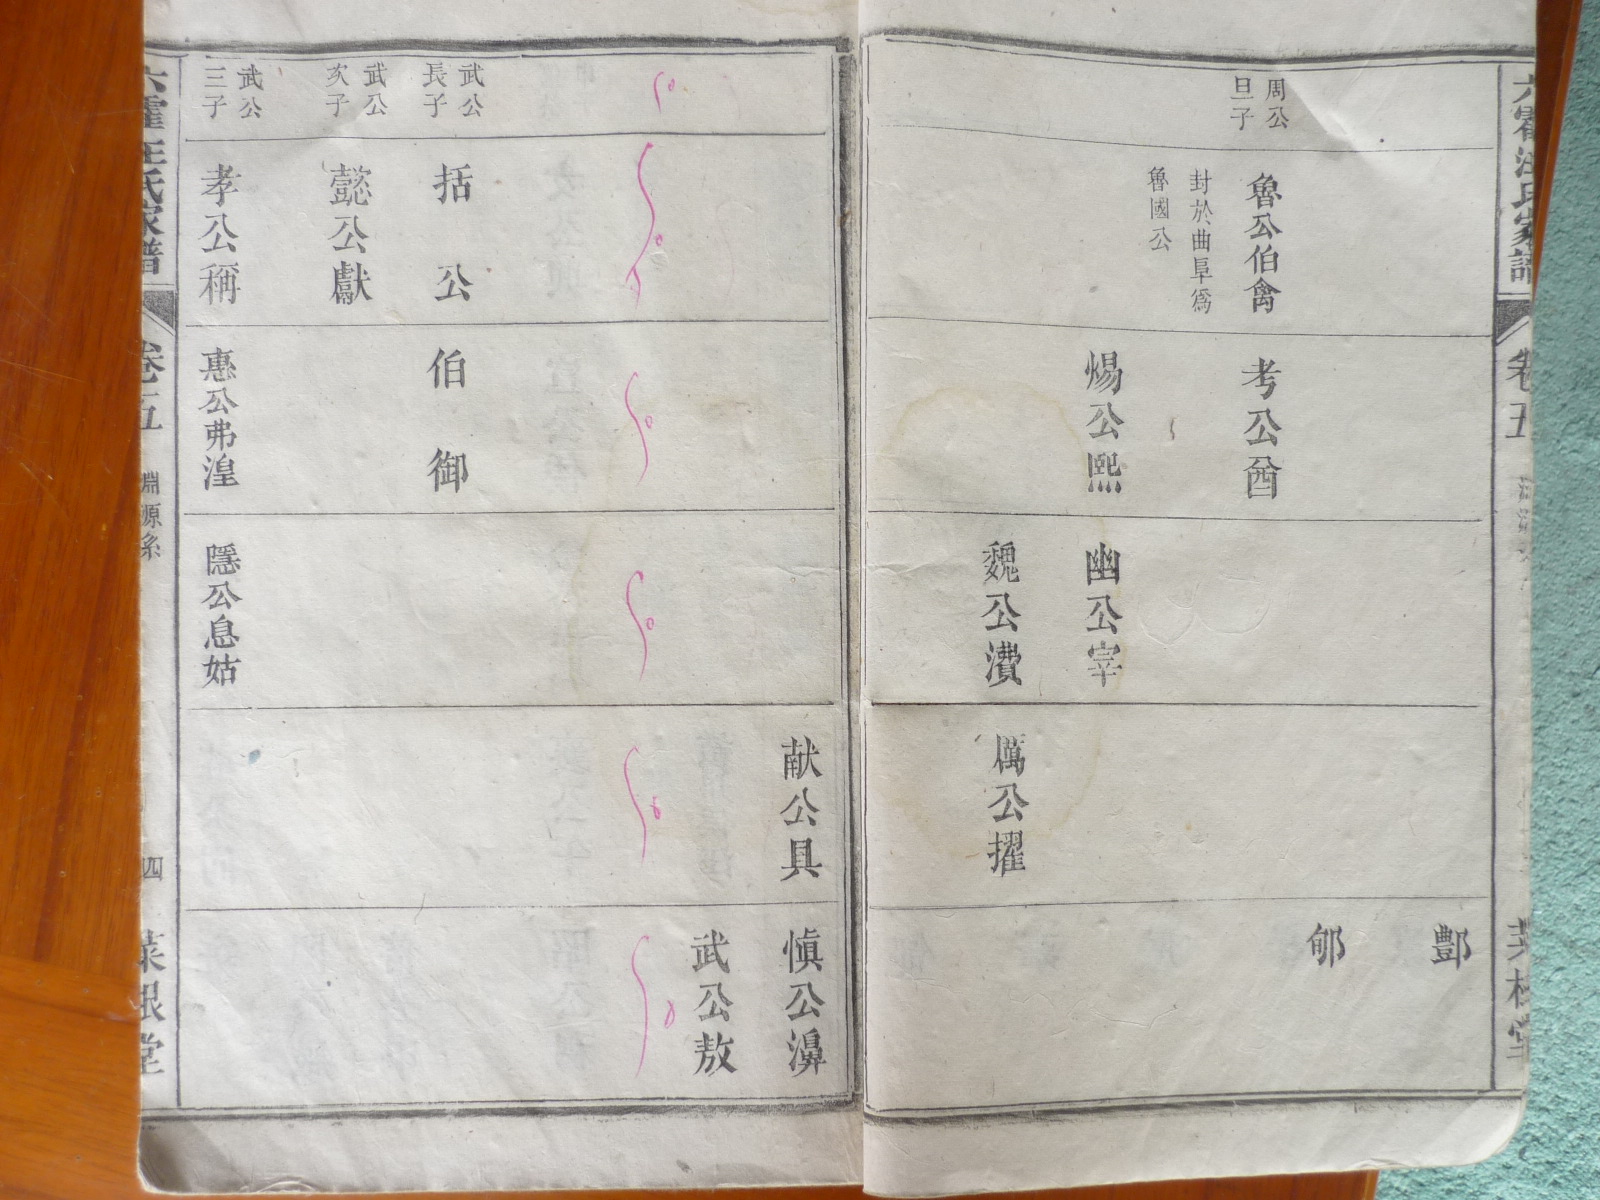 六霍汪氏家譜
卷五
菜根堂
周公
旦子
魯公伯禽
封於曲阜爲
魯國公
考公酋
煬公熙
幽公宰
魏公㵒
厲公擢
酆
郇
献公具
慎公濞
武公敖
武公
長子
括公
伯御
武公
次子
懿公獻
武公
三子
孝公稱
惠公弗湟
隱公息姑
六霍汪氏家譜
卷五
淵源系
四
菜根堂